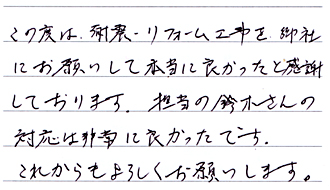 この度は、耐震・リフォーム工事を御社
にお願いして本当に良かったと感謝
しております。担当の鈴木さんの
対応は非常に良かったです。
これからもよろしくお願いします。